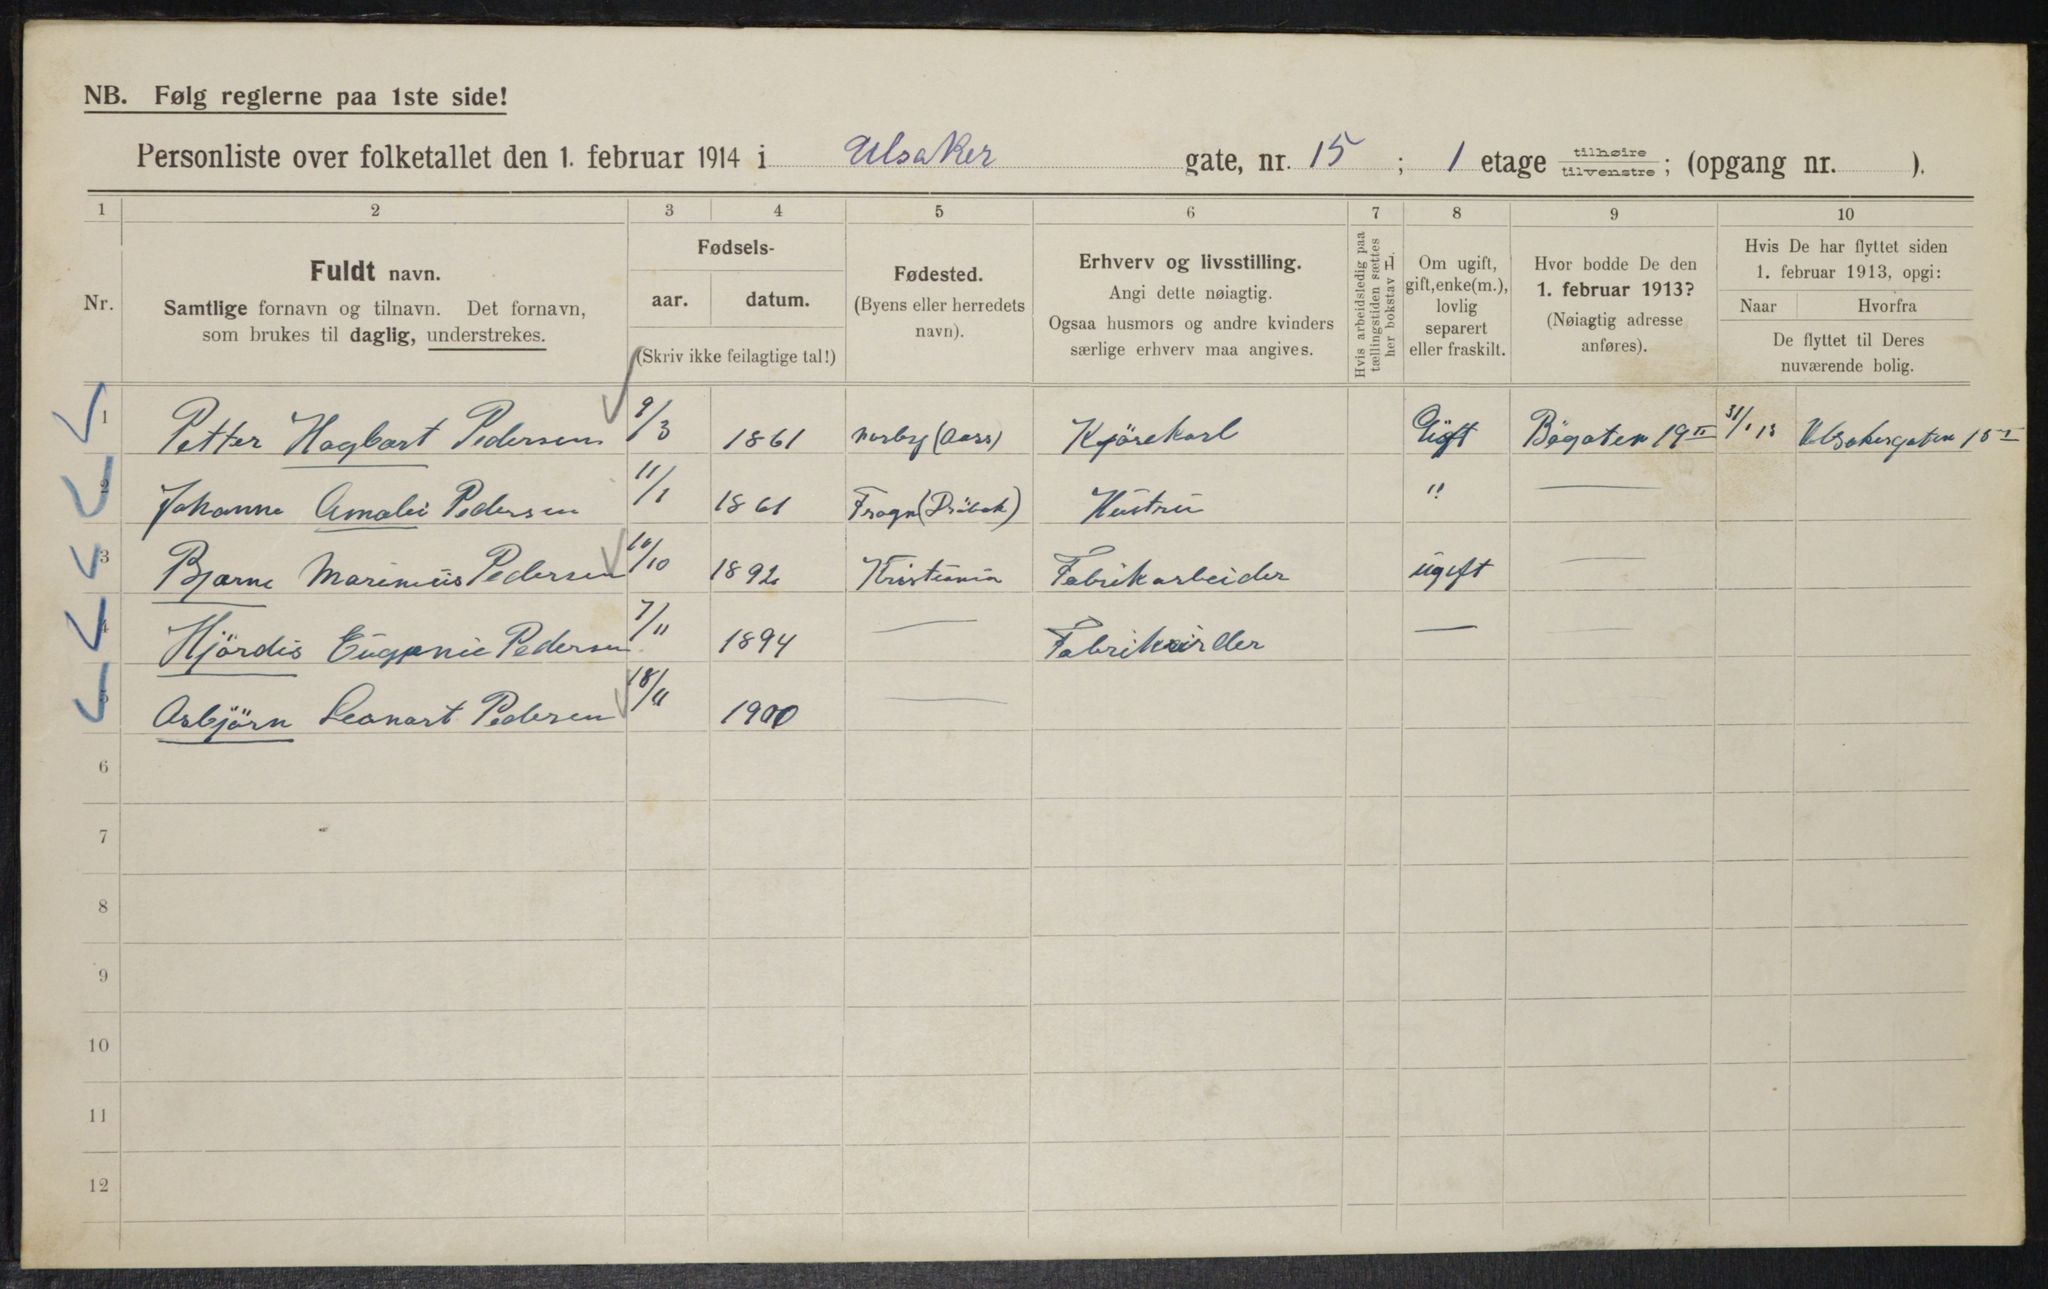 NB. Følg reglerne paa 1ste side!
Personliste over folketallet den 1. februar 1914 i Ulsaker gate, nr. 15 ; 1 etage tilhøire tilvenstre ; (opgang nr. ).
1 2 3 4 5 6 7 8 9 10
Nr.
Fuldt navn.
Samtlige fornavn og tilnavn. Det fornavn,
som brukes til daglig, understrekes.
Fødsels-
aar. datum.
(Skriv ikke feilagtige tal!)
Fødested.
(Byens eller herredets
navn).
Erhverv og livsstilling.
Angi dette nøiagtig.
Ogsaa husmors og andre kvinders
særlige erhverv maa angives.
Hvis arbeidsledig paa
tællingstiden sættes
her bokstav L.
Om ugift,
gift, enke(m.),
lovlig
separert
eller fraskilt.
Hvor bodde De den
1. februar 1913?
(Nøiagtig adresse
anføres).
Hvis De har flyttet siden
1. februar 1913, opgi:
Naar Hvorfra
De flyttet til Deres
nuværende bolig.
1 Petter Hagbart Pedersen 9/3 1861 (Aass) Kjörekarl Gift Bögaten 19 II 31/1 13 Ulsakergaten 15 I
2 Johanne Amalie Pedersen 11/1 1861 Frogn (Dröbak) Hustru "
3 Bjarne Marinius Pedersen 10/10 1892 Kristiania Fabrikarbeider ugift —
4 Hjördis Eugenie Pedersen 7/11 1894 — — —
5 Asbjörn Leonart Pedersen 18/11 1900 —
6
7
8
9
10
11
12